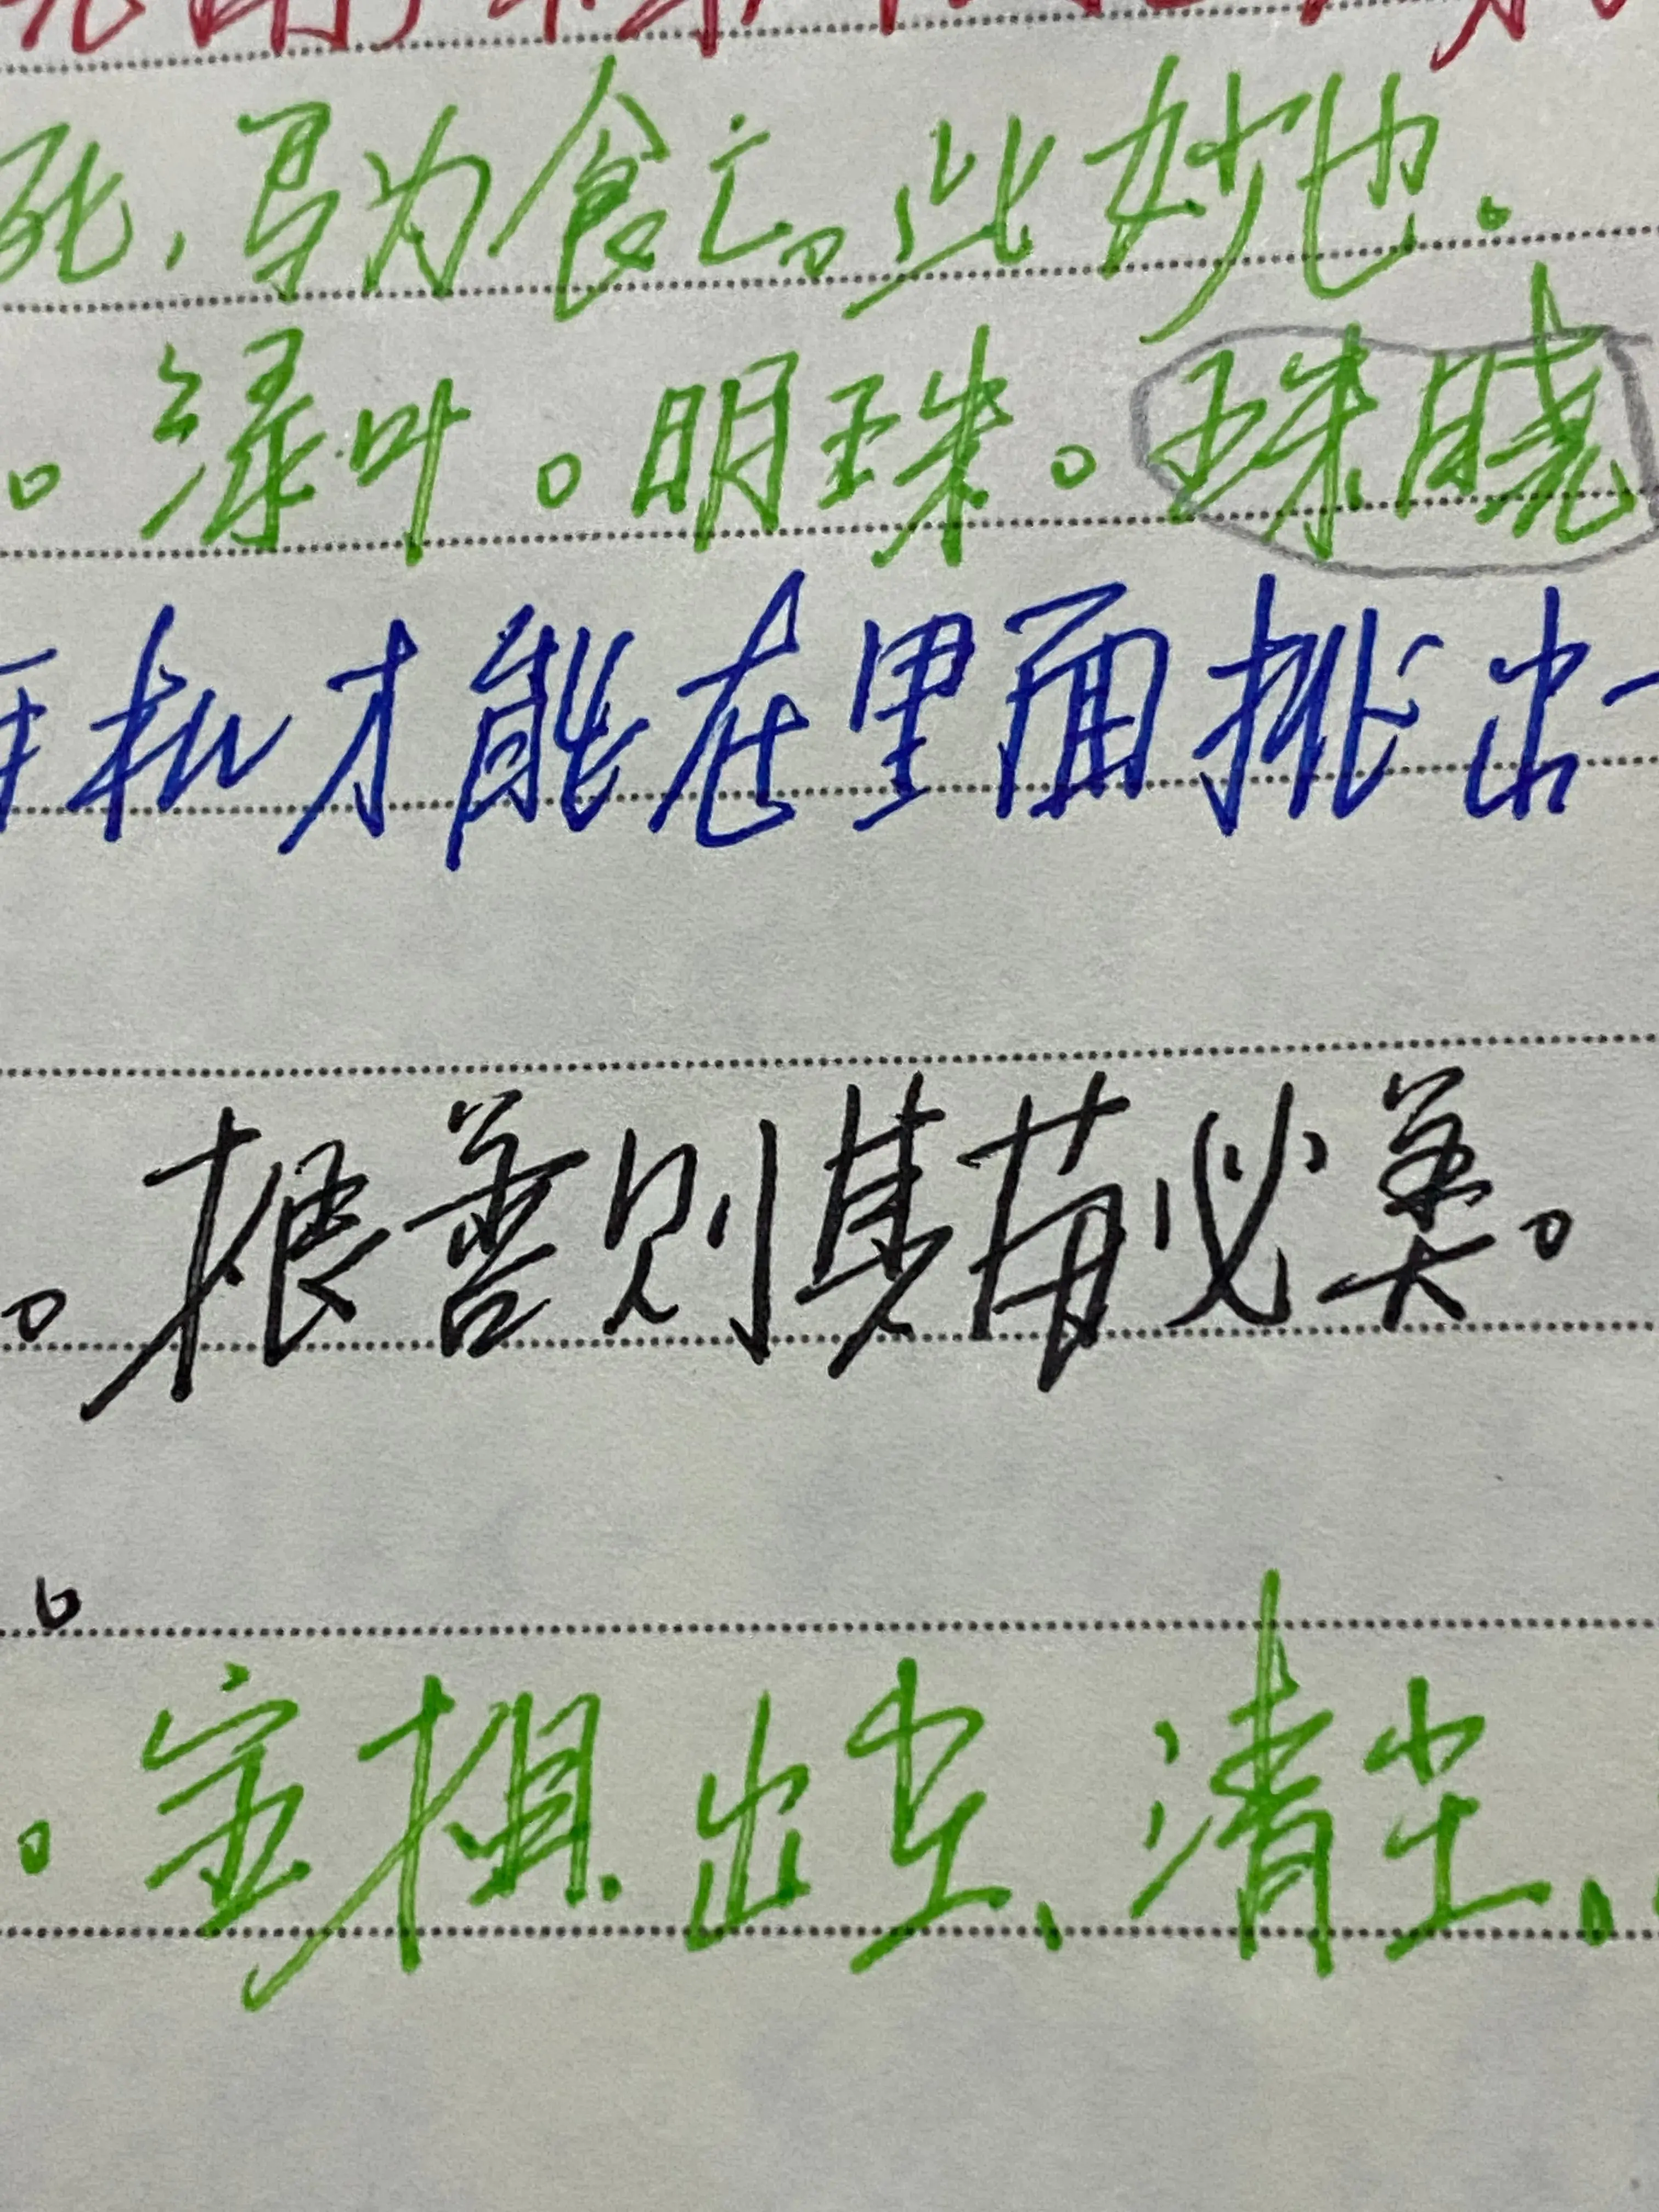 死，鸟为食亡。此妙也。
。绿叶。明珠。珠晓
机才能在里面挑出一
。根善则其苗必美。
。宝棋出尘、清尘、